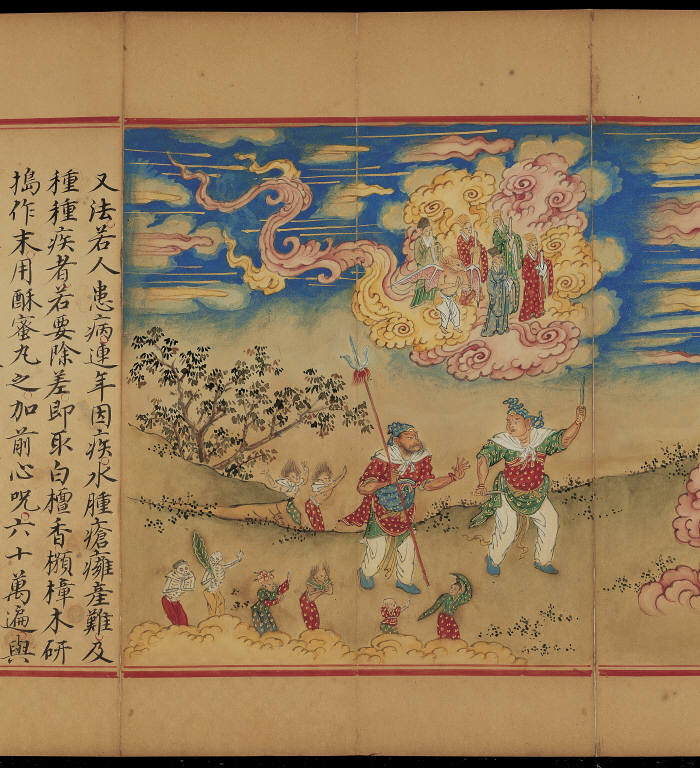 又法若人患病連年因疾水腫瘡癰産難及
種種疾者若要除差即取白檀香櫴樟木研
搗作末用酥蜜丸之加前心呪六十萬遍與